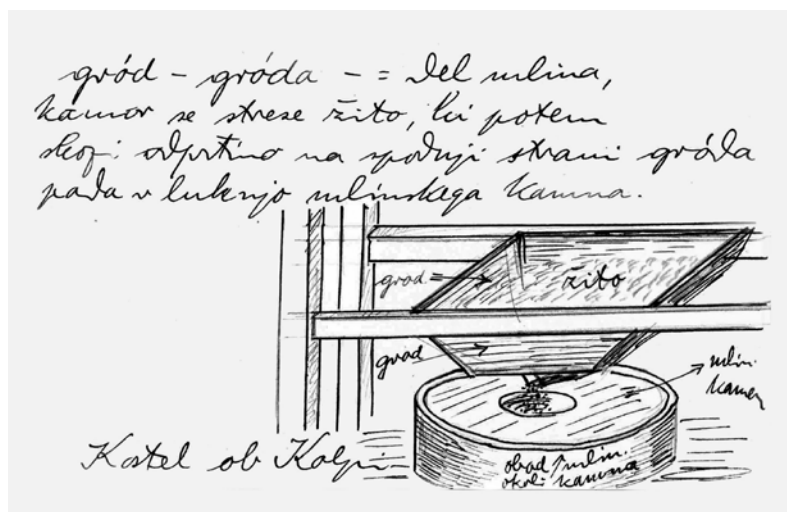 gród – gróda – = del mlina,
kamor se strese žito, ki potem
skozi odprtino na spodnji strani gróda
pada v luknjo mlinskega kamna.
grod
žito
grod
mlin.
kamen
Kostel ob Kolpi
obod mlin.
okoli kamna